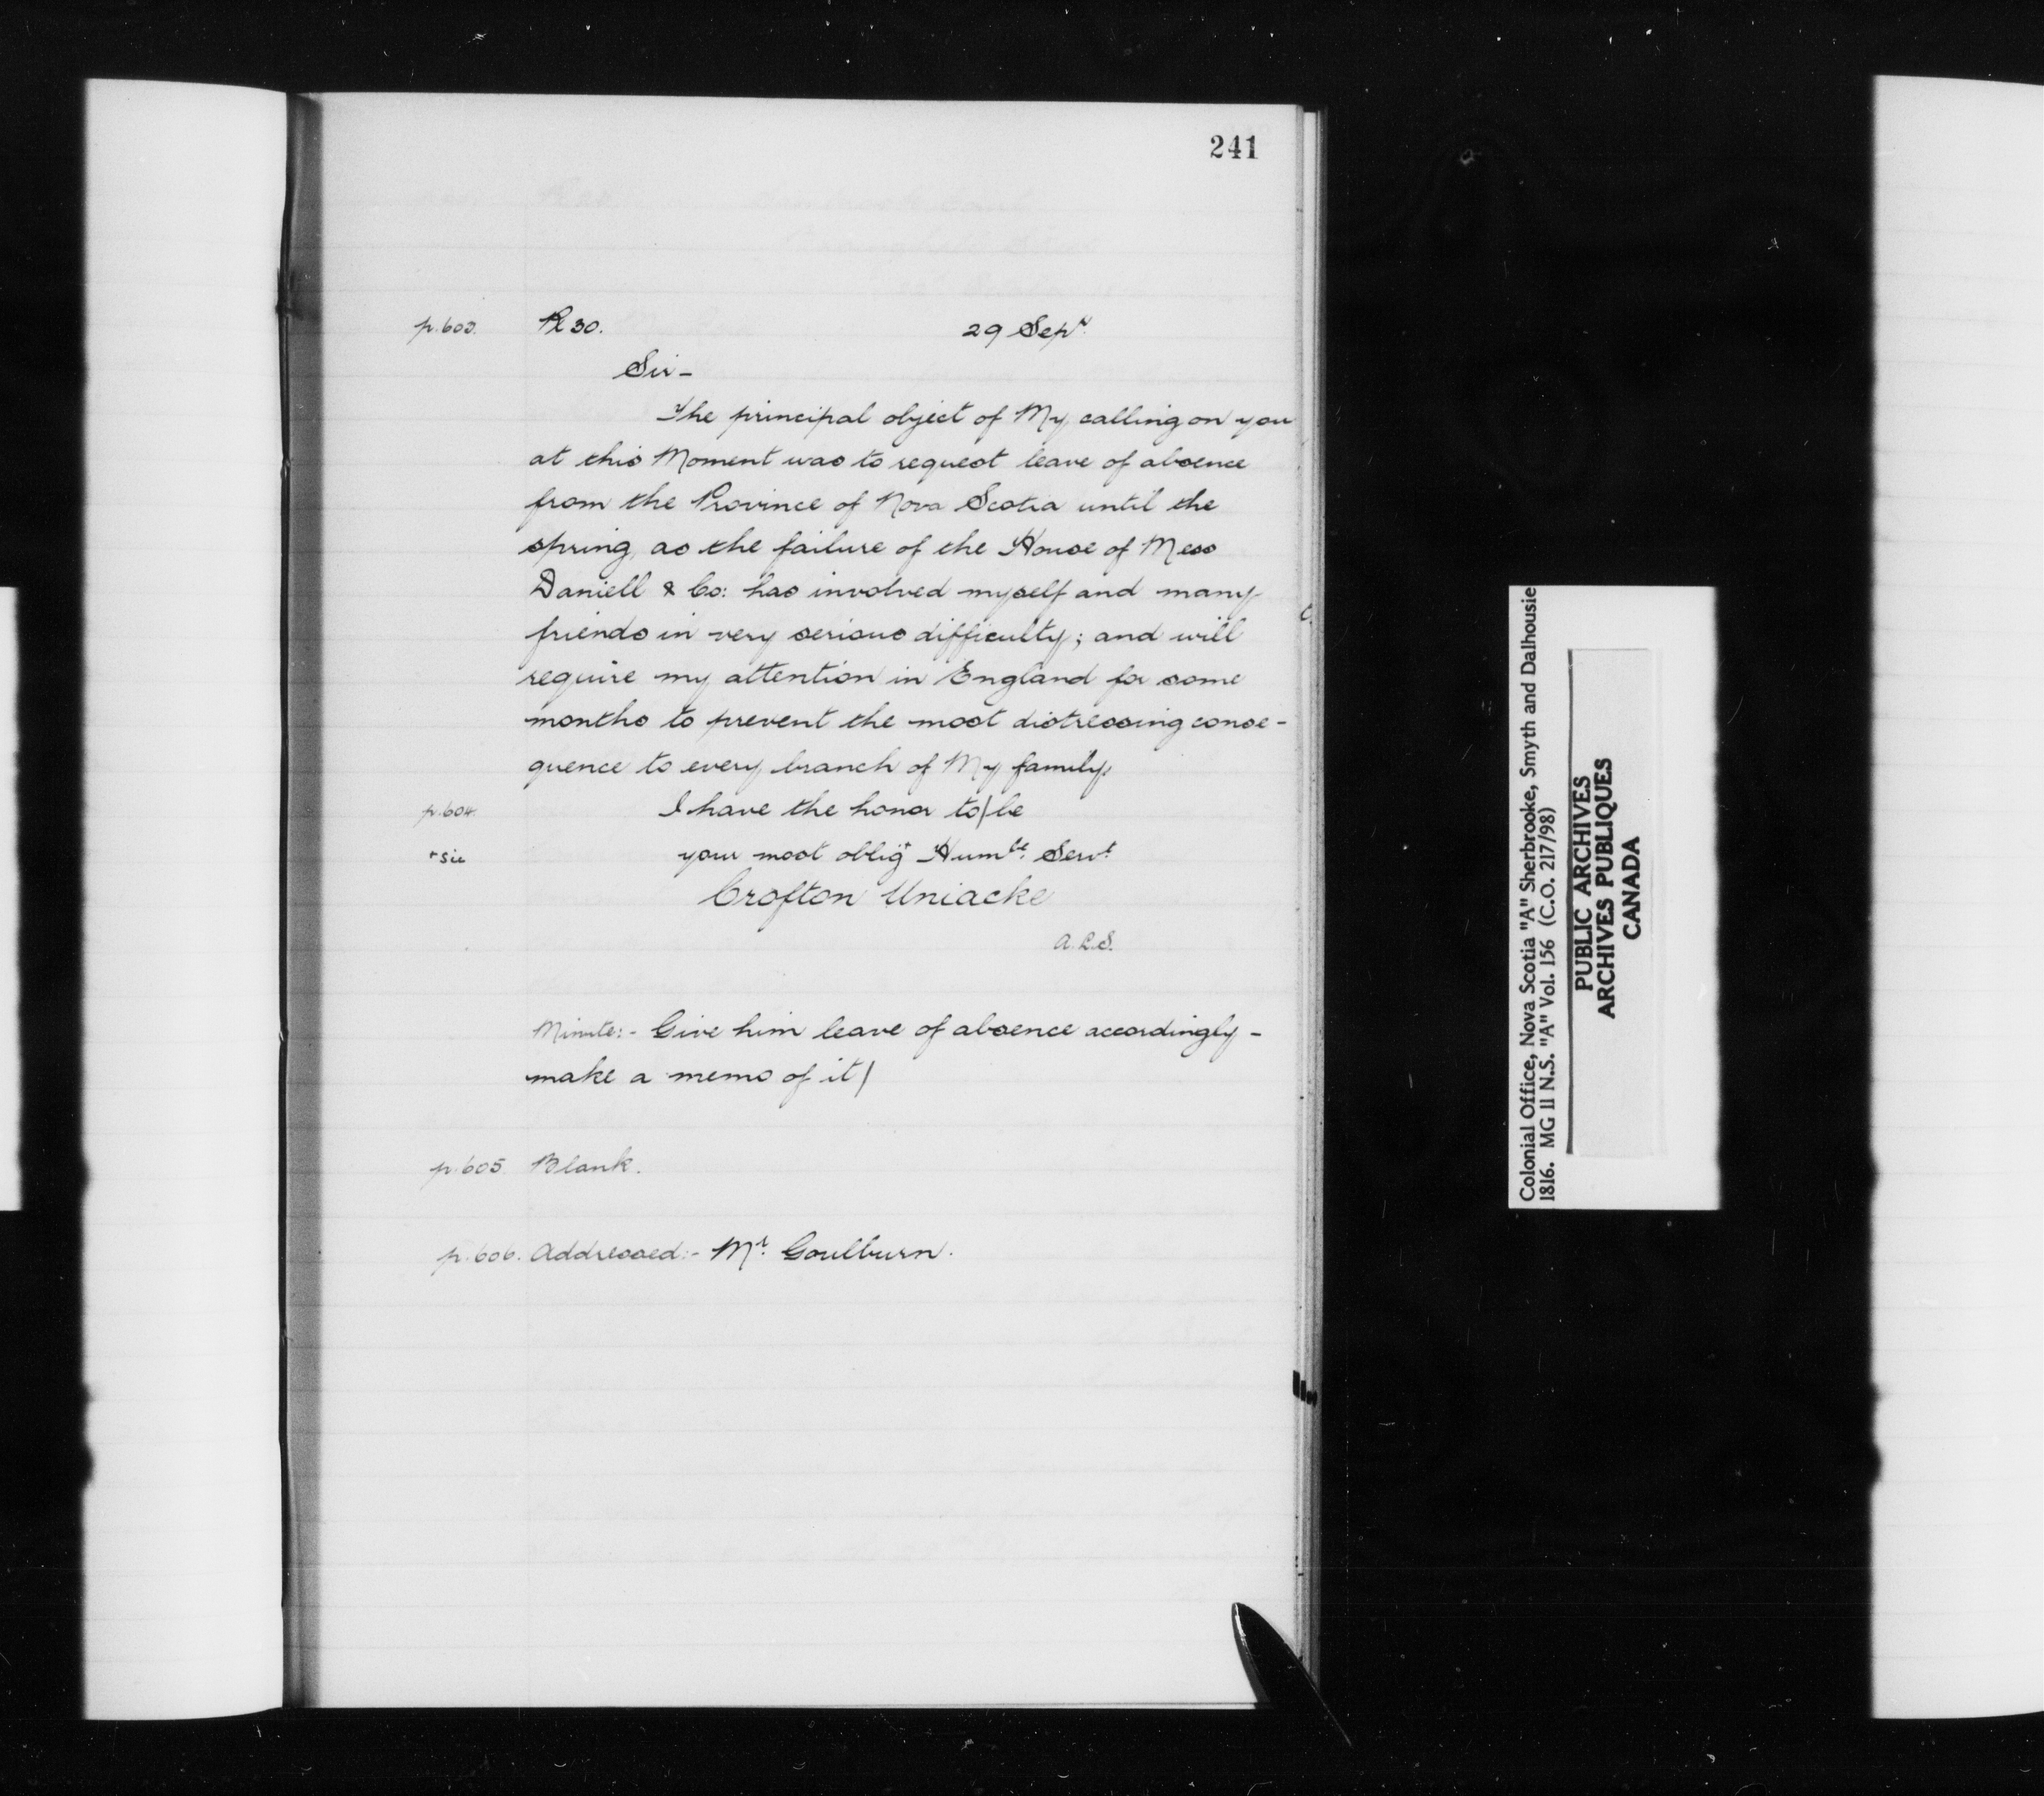 241
p.603. R 30. 29 Sepr.
Sir-
The principal object of My calling on you
at this Moment was to request leave of absence
from the Province of Nova Scotia until the
spring, as the failure of the House of Mess
Daniell & Co: has involved myself and many
friends in very serious difficulty; and will
require my attention in England for some
months to prevent the most distressing conse-
quence to every branch of My family.
p.604. I have the honor to/be
+sic your most oblig+ Humble. Servt.
Crofton Uniacke
A.L.S.
Minute:- Give him leave of absence accordingly-
make a memo of it/
p.605. Blank.
p.606. Addressed:- Mr. Goulburn.
Colonial Office, Nova Scotia "A" Sherbrooke, Smyth and Dalhousie
1816. MG 11 N.S. "A" Vol. 156 (C.O. 217/98)
PUBLIC ARCHIVES
ARCHIVES PUBLIQUES
CANADA